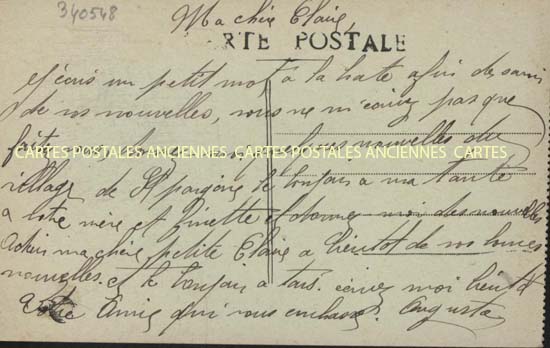 340548
Ma chère Claire,
CARTE POSTALE
J'écris un petit mot à la hâte afin de savoir
de vos nouvelles, vous ne m'écrivez pas que
nouvelles du
CARTES POSTALES ANCIENNES CARTES POSTALES ANCIENNES CARTES
village de St le bonjour à ma tante
à votre mère et et donnez moi des nouvelles
Adieu ma chère petite Claire à bientôt de vos bonnes
nouvelles. et le bonjour à tous. écrivez moi bientôt
votre Amie qui vous embrasse. Augusta